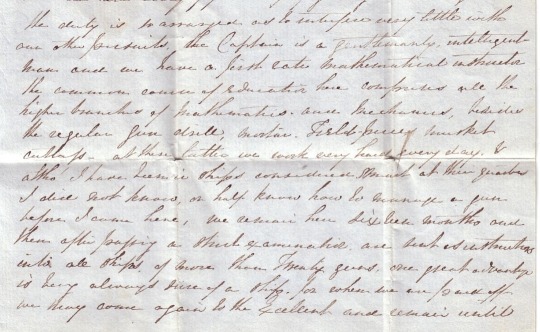 the duty is so arranged as to interfere very little with
our other pursuits, the Captain is a gentlemanly, intelligent
man and we have a first rate mathematical instructor
the common course of Education here comprises all the
higher branches of mathematics and Mechanics, besides
the regular gun drill, mortar, Field-pieces musket
cutlass - at these latter we work very hard every day. &
altho I have been in ships considered smart at their gunnery
I did not know, or half know how to manage a gun
before I came here, we remain here sixteen months and
then after passing a strict examination are sent as instructors
into all ships of more than Twenty guns, one great advantage
is being always sure of a ship, for when we are paid off
we may come again to the Excellent and remain until